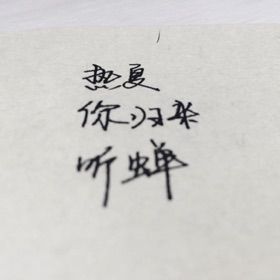 热夏
你归来
听蝉